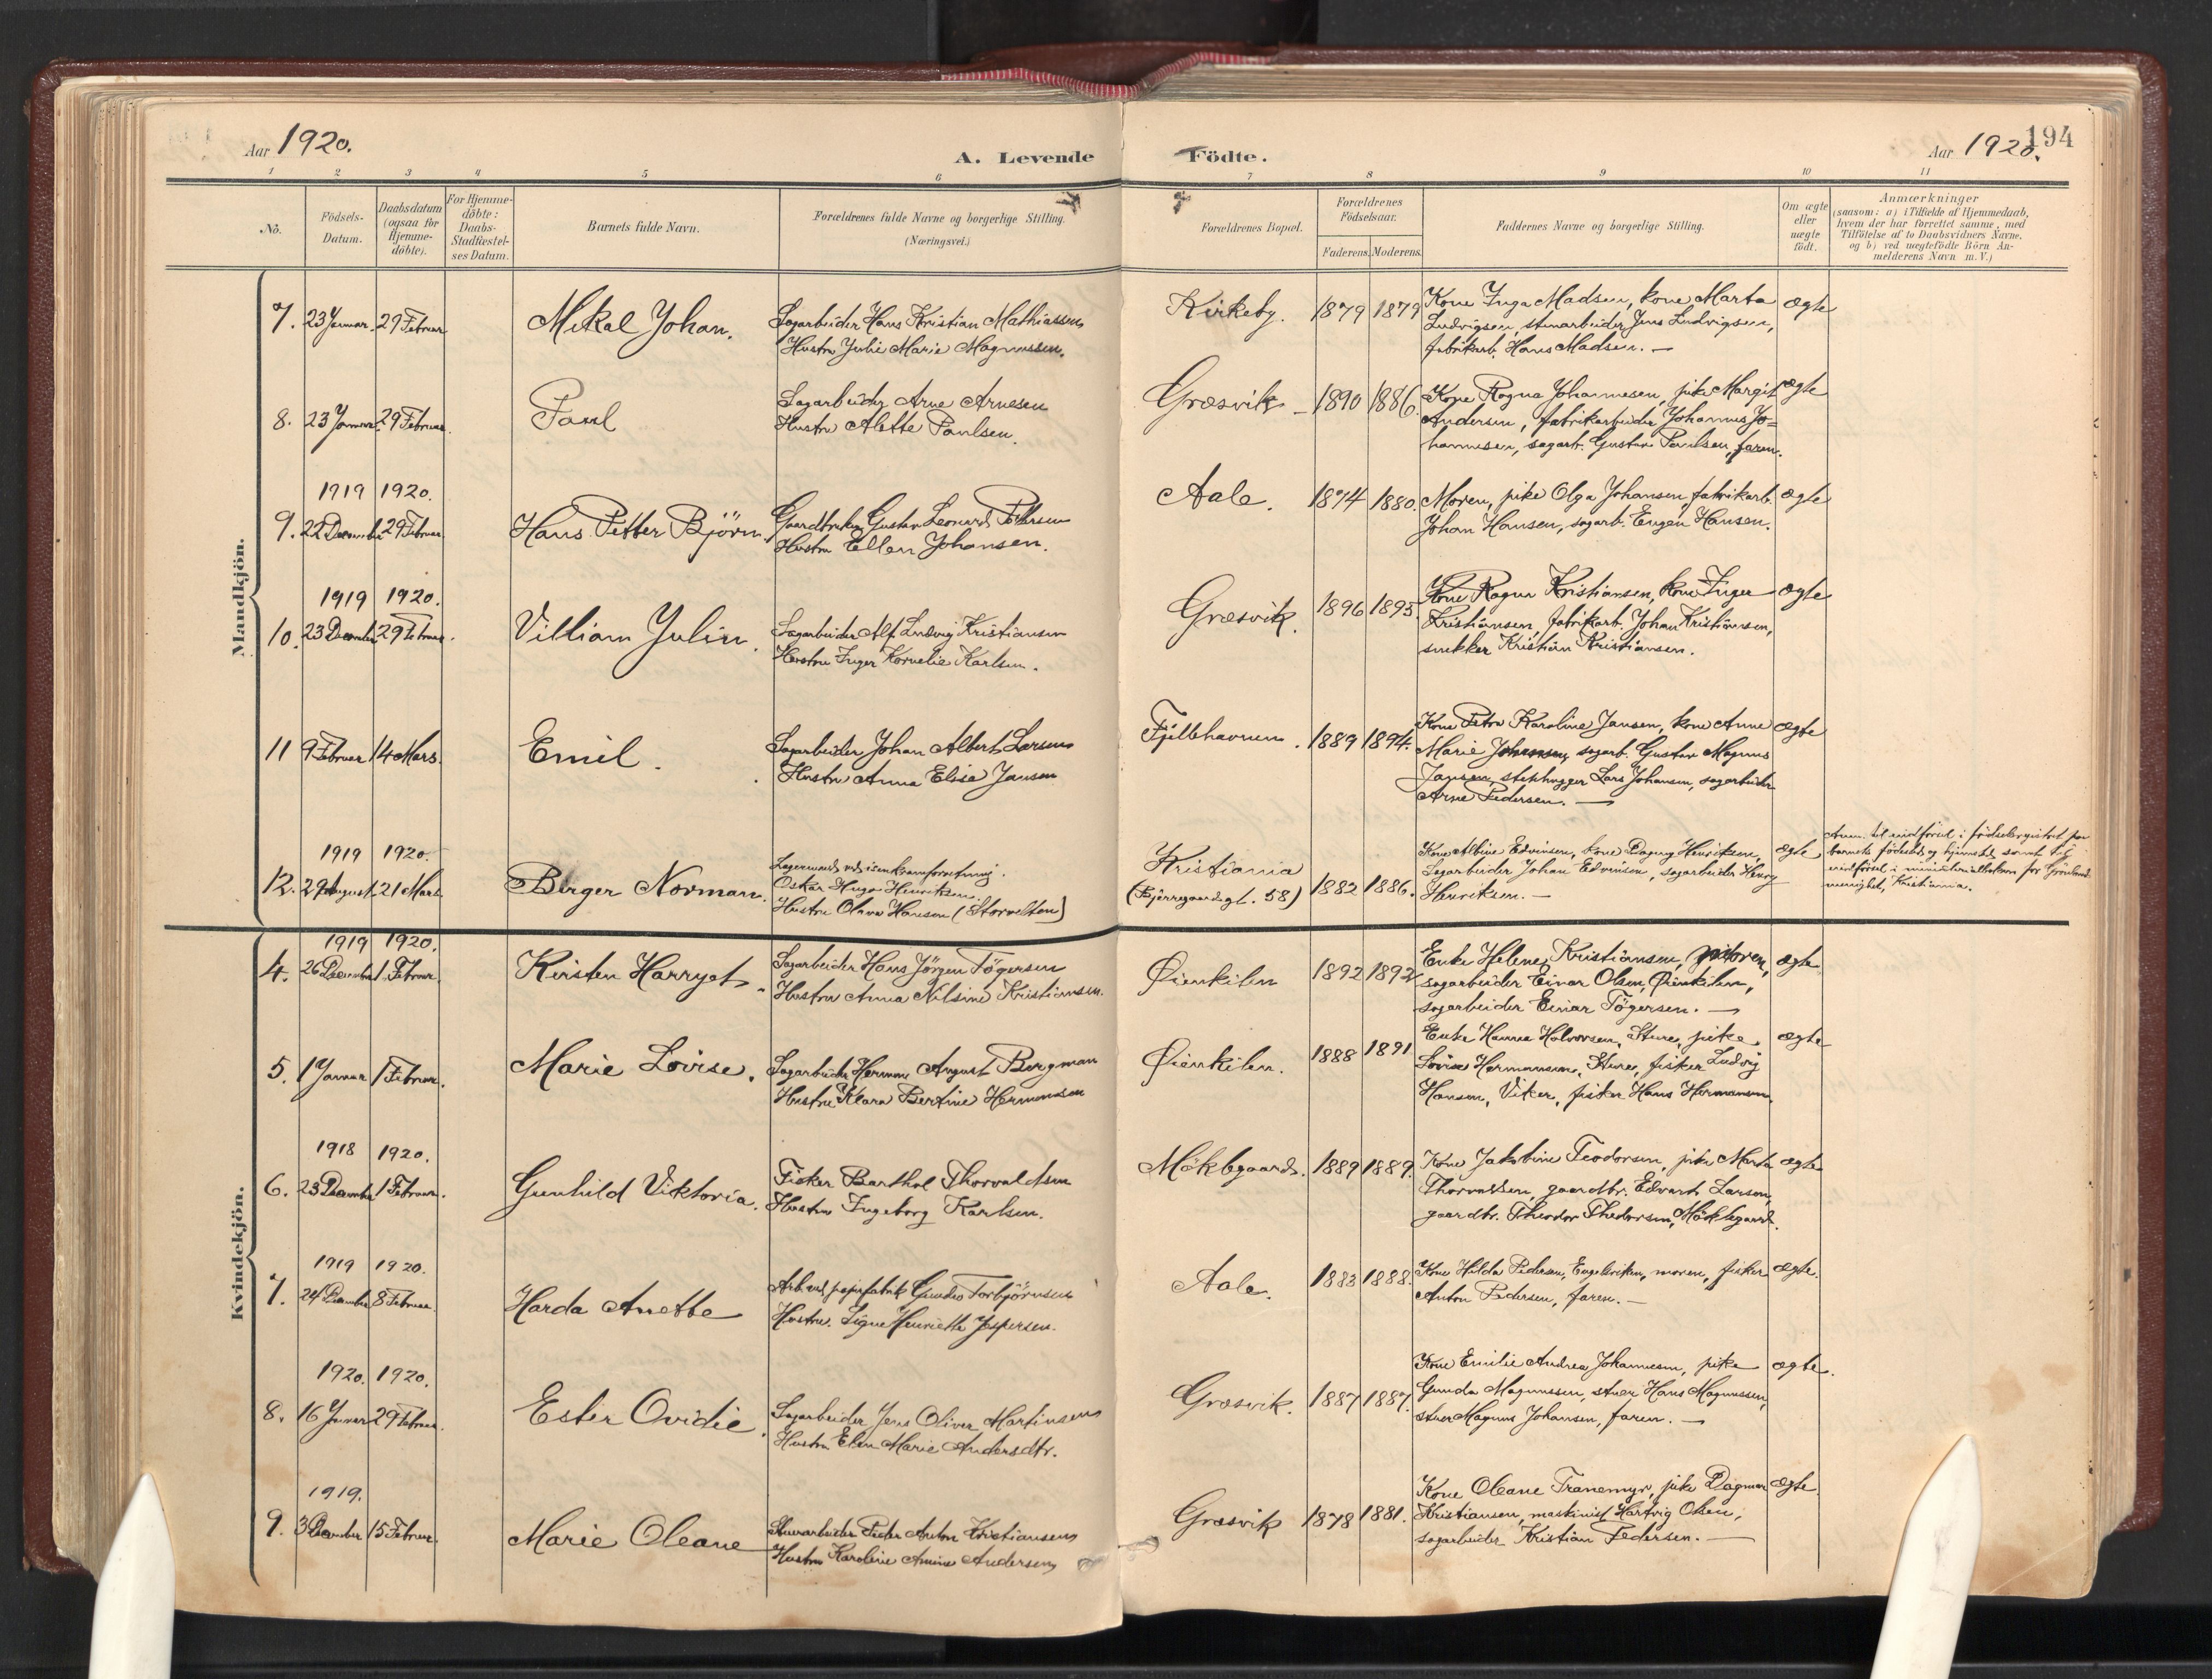 194
Aar 1920.
A. Levende Födte.
Aar 1920.
1 2 3 4 5 6 7 8 9 10 11
No.
Födsels-Datum.
Daabsdatum (ogsaa for Hjemme-döbte).
For Hjemme-döbte: Daabs-Stadfæstel-ses Datum.
Barnets fulde Navn.
Forældrenes fulde Navne og borgerlige Stilling. (Næringsvei.)
Forældrenes Bopæl.
Forældrenes Födselsaar.
Faderens. Moderens.
Faddernes Navne og borgerlige Stilling.
Om ægte eller uægte födt.
Anmærkninger
(saasom: a) i Tilfælde af Hjemmedaab,
hvem der har forrettet samme, med
Tilföielse af to Daabsvidners Navne,
og b) ved uægtefödte Börn An-
melderens Navn m. V.)
Mandkjön.
7. 23 Januar. 29 Februar. Mikal Johan. Sagarbeider Hans Kristian Mathiassen
Hustru Julie Marie Magnussen.
Kirkeby. 1879 1879 Kone Inga Madsen, kone Marta
Ludvigsen, stenarbeider Jens Ludvigsen,
fabrikarb. Hans Madsen. —
ægte
8. 23 Januar 29 Februar. Paul Sagarbeider Arne Arnesen
Hustru Alette Paulsen.
Græsvik 1890 1886. Kone Ragna Johannesen, pike Margit
Andersen, fabrikarbeider Johannes Jo=
hannesen, sagarb. Gustav Paulsen, faren.
ægte
1919 1920.
9. 22 December 29 Februar. Hans Petter Björn. Gaardbruker Gustav Leonard Pettersen
Hustru Ellen Johansen.
Aale. 1874 1880. Moren, pike Olga Johansen, fabrikarb.
Johan Hansen, sagarb. Eugen Hansen.
ægte
1919 1920.
10. 23 December 29 Februar. Villiam Julin. Sagarbeider Alf Ludvig Kristiansen
Hustru Inger Kornelie Karlsen.
Græsvik. 1896 1895 Kone Ragna Kristiansen, kone Inger
Kristiansen, fabrikarb. Johan Kristiansen,
snekker Kristian Kristiansen.
ægte
11 9 Februar 14 Mars. Emil. Sagarbeider Johan Albert Larsen
Hustru Anna Elise Jansen
Fjellehavnen. 1889 1894. Kone Petra Karoline Jansen, kone Anne
Marie Johansen, sagarb. Gustav Magnus
Jansen, stenhugger Lars Johansen, sagarbeider
Arne Pedersen. —
ægte
1919 1920.
12. 29 August 21 Mars Birger Norman. Lagermand ved isenkramforretning.
Oskar Hugo Henriksen.
Hustru Olava Hansen (Storvelten)
Kristiania
(Bjerregaardsgt. 58) 1882 1886. Kone Albine Edvinsen, kone Dagny Henriksen,
Sagarbeider Johan Edvinsen, sagarbeider Henry
Henriksen. —
ægte
Anm. til indförsel i födselsregistret for
barnets födested og hjemsted samt til
indförsel i ministerialboken for Grönland
menighet, Kristiania.
Kvindekjön.
1919 1920.
4. 26 December 1. Februar. Kirsten Harryet. Sagarbeider Hans Jörgen Tögersen
Hustru Anna Nilsine Kristiansen.
Øienkilen 1892 1892 Enke Helene Kristiansen, moren,
sagarbeider Einar Olsen, Øienkilen,
sagarbeider Einar Tögersen. —
ægte
5. 1 Januar 1 Februar. Marie Lovise. Sagarbeider Herman August Bergman
Hustru Klara Bertine Hermansen
Øienkilen. 1888 1891 Enke Hanna Halvorsen, Sture, pike
Lovise Hermansen, Sture, fisker Ludvig
Hansen, Viker, fisker Hans Hermansen.
ægte
1918 1920.
6. 23 December 1 Februar. Gunhild Viktoria. Fisker Barthol Thorvaldsen
Hustru Ingeborg Karlsen.
Möklegaard. 1889 1889. Kone Jakobine Teodorsen, pike Marta
Thorvaldsen, gaardbr. Edvart Larsen,
gaardbr. Theodor Thedorsen, Möklegaard.
ægte
1919 1920.
7. 24 December 8 Februar. Harda Anette Arb. ved papirfabrik Gunder Torbjörnsen
Hustru Signe Henriette Jespersen.
Aale. 1883 1888. Kone Hilda Pedersen, Engelsviken, moren, fisker
Anton Pedersen, faren. —
ægte.
1920. 1920.
8. 16 Januar 29 Februar. Ester Ovidie. Sagarbeider Jens Oliver Martinsen
Hustru Elen Marie Andersdtr.
Græsvik. 1887 1887. Kone Emilie Andrea Johannesen, pike
Gunda Magnussen, stuer Hans Magnussen,
stuer Magnus Johansen, faren. —
ægte.
1919.
9. 3 December 15 Februar. Marie Oleane Stuerarbeider Peder Anton Kristiansen
Hustru Karoline Amine Andersen
Græsvik 1878 1881. Kone Oleane Tranemyr, pike Dagmar
Kristiansen, maskinist Hartvig Olsen,
sagarbeider Kristian Pedersen. —
ægte